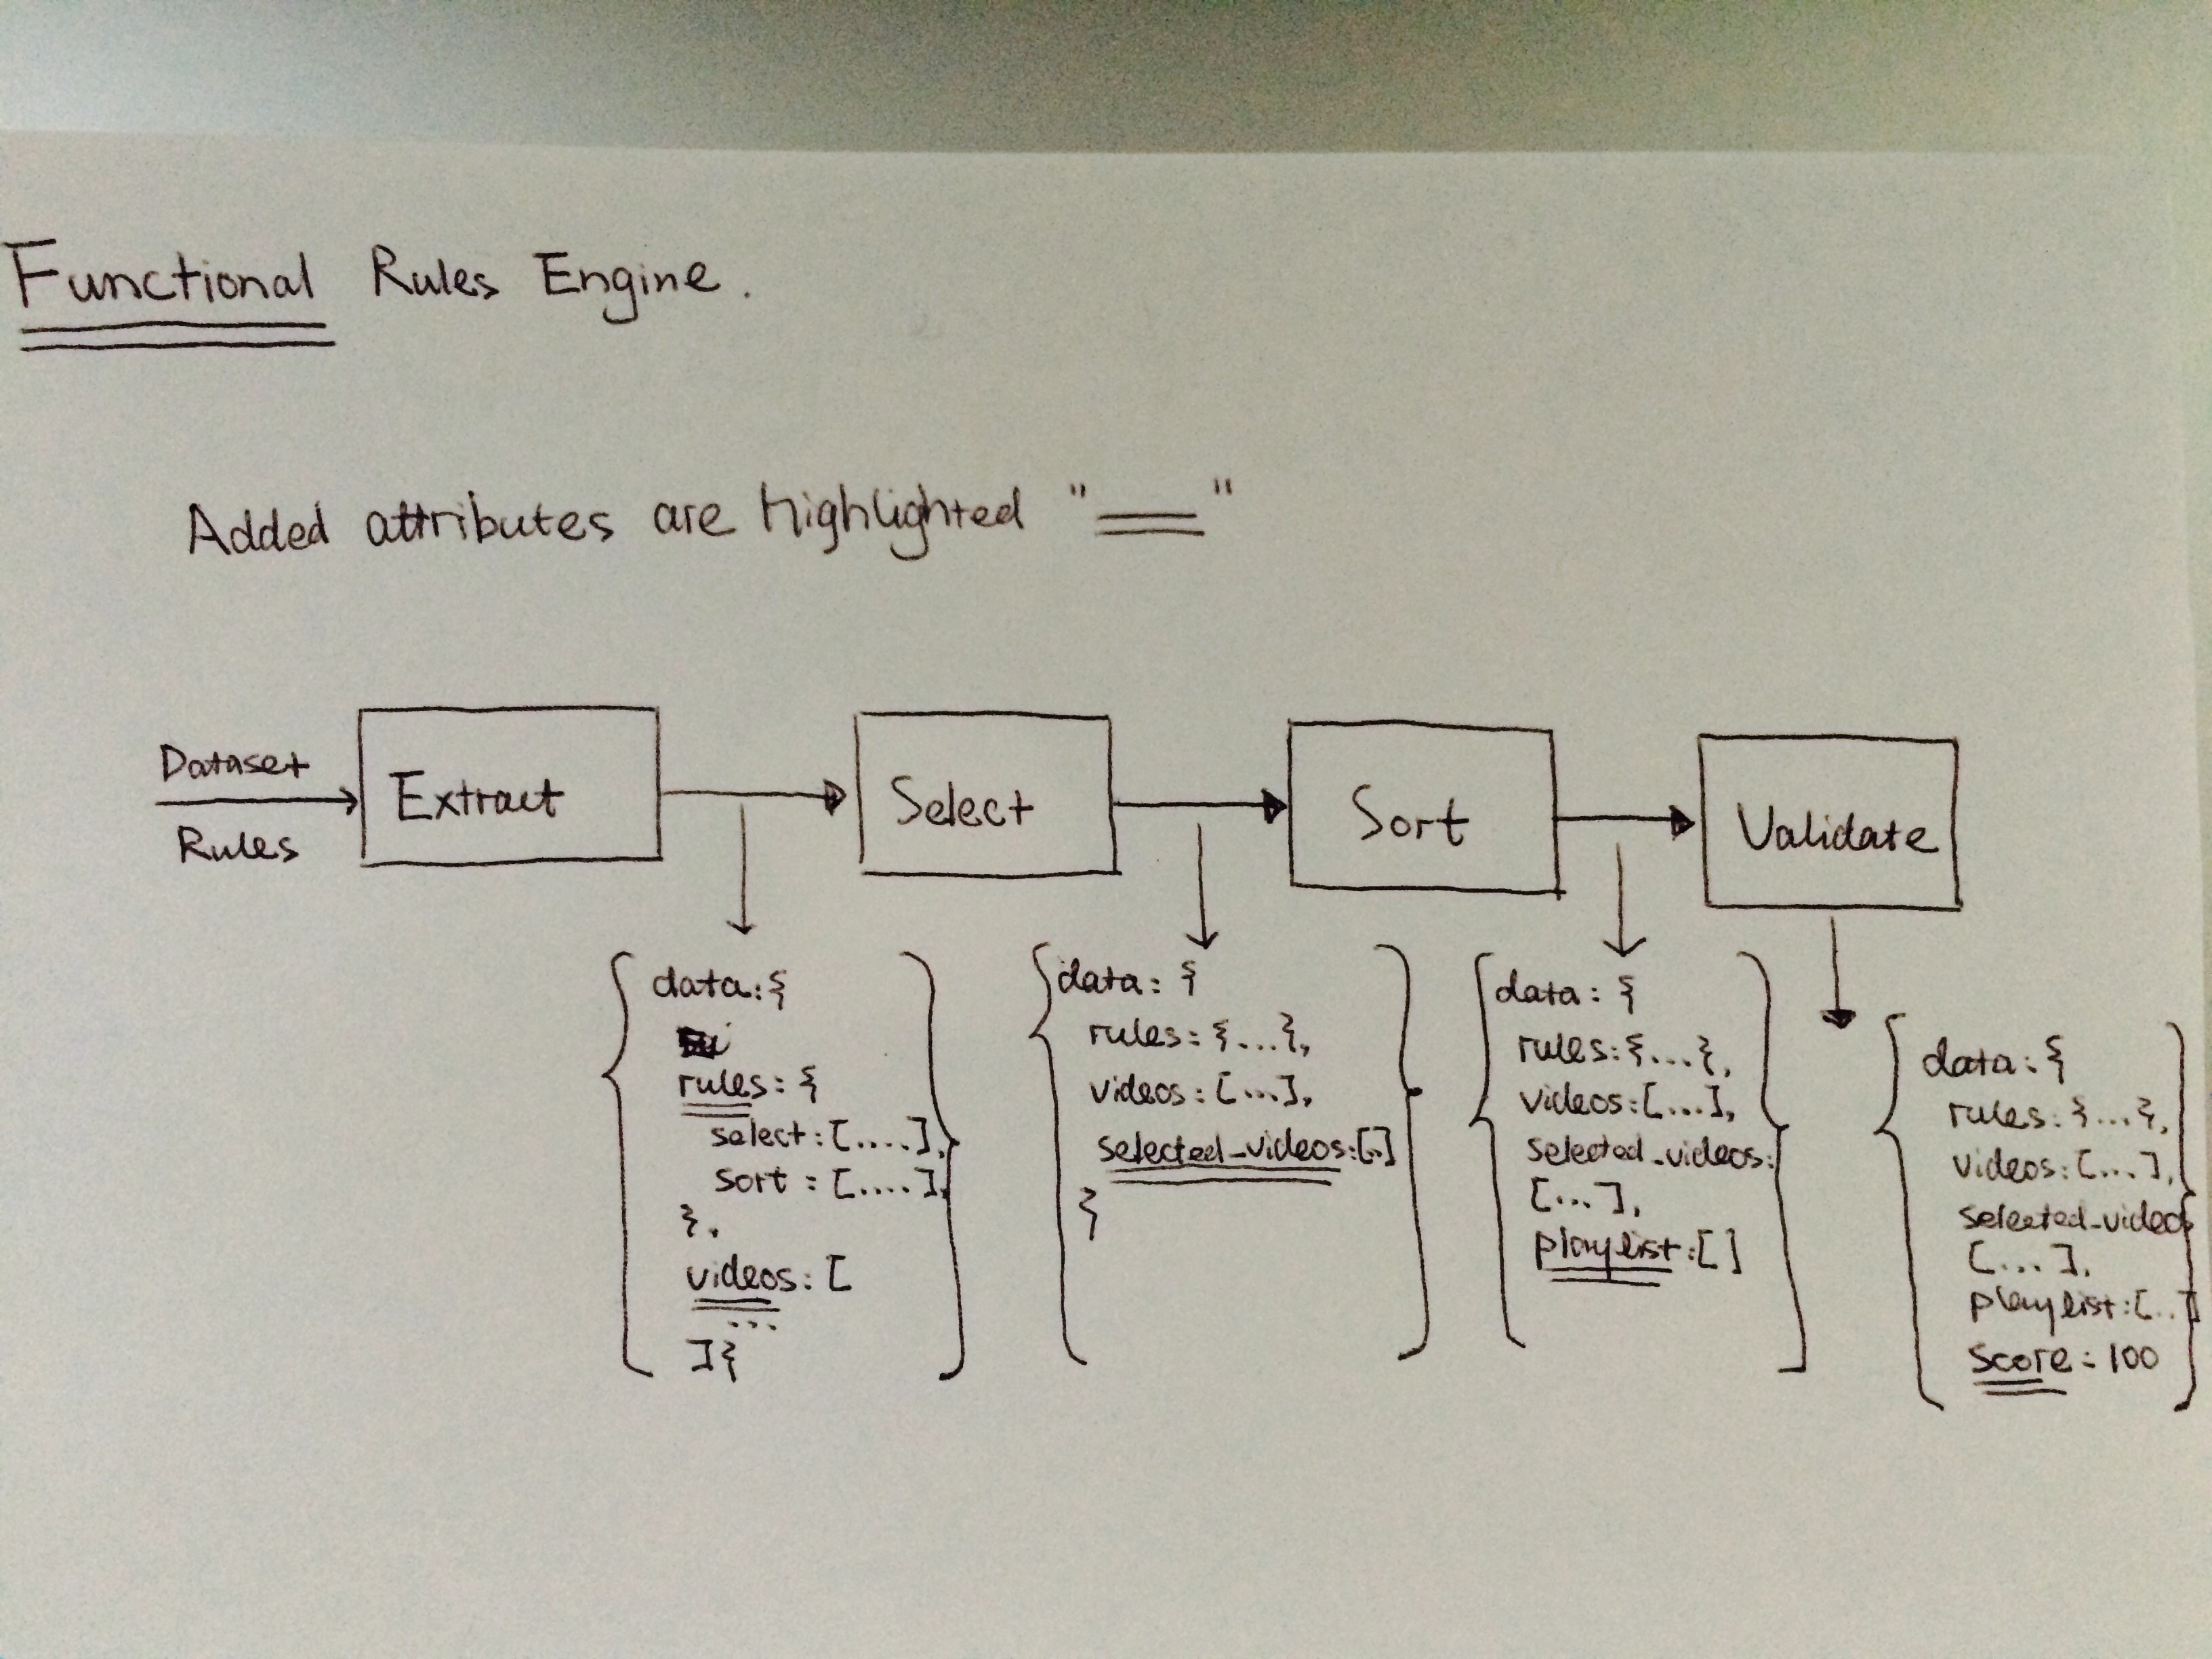 Functional Rules Engine.
Added attributes are highlighted "══"
Dataset
Rules
Extract
Select
Sort
Validate
data:{
rules: {
select: [....],
sort: [....],
},
videos: [
...
]}
data: {
rules: {...},
videos: [...],
selected_videos:[..]
}
data: {
rules:{...},
videos:[...],
selected_videos:
[...],
playlist:[ ]
data:{
rules: {...},
videos: [...],
selected_videos
[...],
playlist:[..]
score: 100